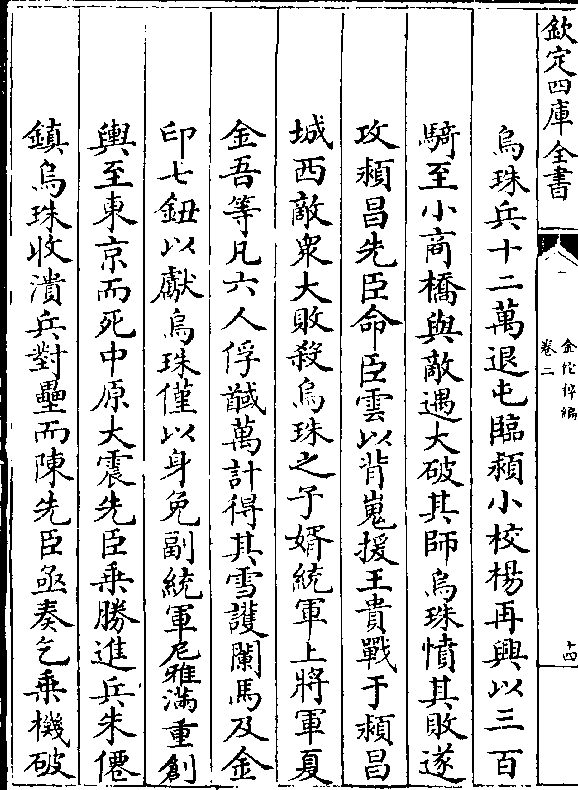 欽定四庫全書
金佗稡編
卷二
十四
烏珠兵十二萬退屯臨潁小校楊再興以三百
騎至小商橋與敵遇大破其師烏珠憤其敗遂
攻潁昌先臣命臣雲以背嵬援王貴戰于潁昌
城西敵衆大敗殺烏珠之子婿統軍上將軍夏
金吾等凡六人俘馘萬計得其雪護闌馬及金
印七鈕以獻烏珠僅以身免副統軍尼雅滿重創
輿至東京而死中原大震先臣乗勝進兵朱僊
鎮烏珠收潰兵對壘而陳先臣亟奏乞乗機破